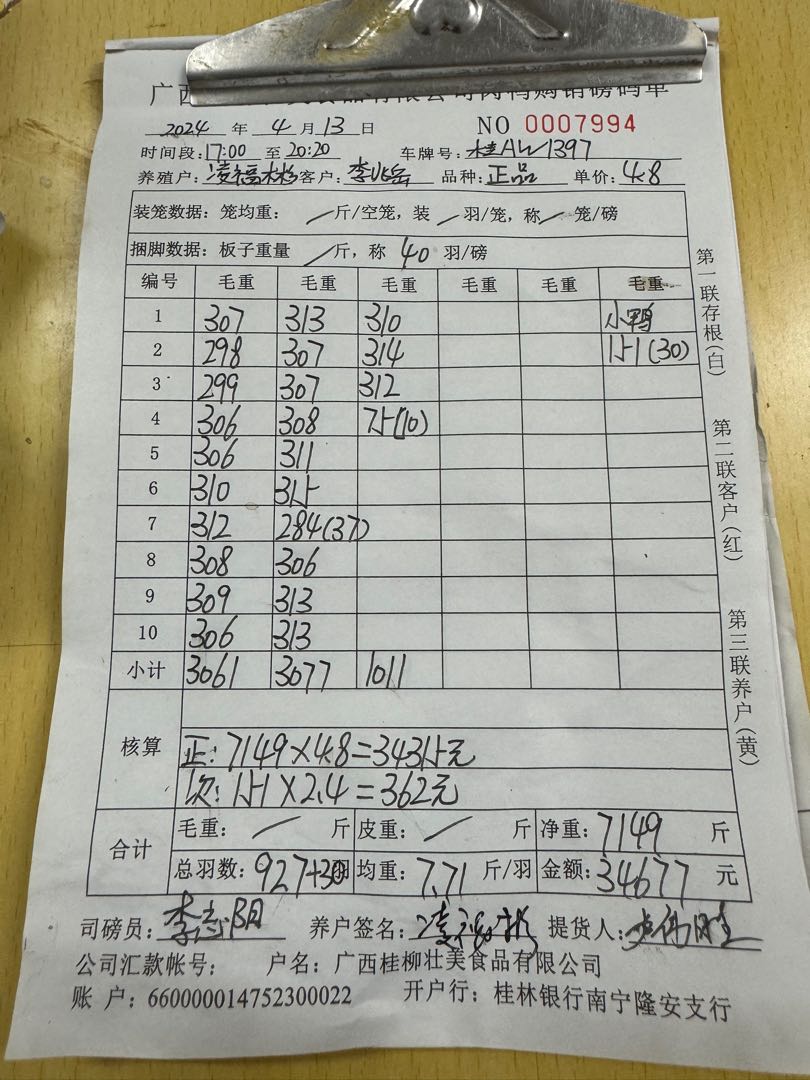 广西 食品有限公司肉鸭购销磅码单
2024 年 4 月 13 日 NO 0007994
时间段: 17:00 至 20:20 车牌号: 桂AW1397
养殖户: 凌福彬 客户: 李兆岳 品种: 正品 单价: 4.8
装笼数据: 笼均重: / 斤/空笼, 装 / 羽/笼, 称 / 笼/磅
捆脚数据: 板子重量 / 斤, 称 40 羽/磅
编号 毛重 毛重 毛重 毛重 毛重 毛重
1 307 313 310 小鸭
2 298 307 314 151(30)
3 299 307 312
4 306 308 75(10)
5 306 311
6 310 315
7 312 284(37)
8 308 306
9 309 313
10 306 313
小计 3061 3077 1011
核算
正: 7149×4.8=34315元
次: 151×2.4=362元
合计
毛重: / 斤 皮重: / 斤 净重: 7149 斤
总羽数: 927+30羽 均重: 7.71 斤/羽 金额: 34677 元
司磅员: 李志阳 养户签名: 凌福彬 提货人:
公司汇款帐号: 户名: 广西桂柳壮美食品有限公司
账 户: 660000014752300022 开户行: 桂林银行南宁隆安支行
第一联存根(白)
第二联客户(红)
第三联养户(黄)